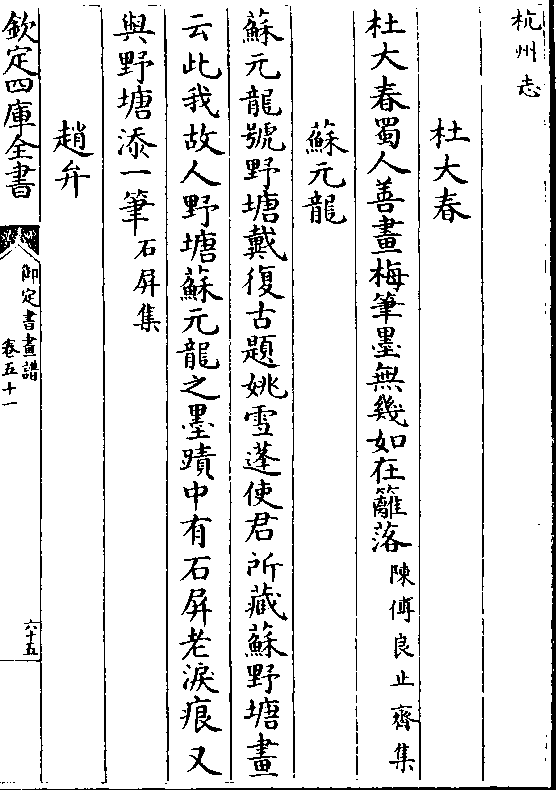 杭州志
杜大春
杜大春蜀人善畫梅筆墨無幾如在籬落陳傅良止齋集
蘇元龍
蘇元龍號野塘戴復古題姚雪蓬使君所藏蘇野塘畫
云此我故人野塘蘇元龍之墨蹟中有石屏老淚痕又
與野塘添一筆石屏集
趙弁
欽定四庫全書
御定書畫譜
卷五十一
六十五